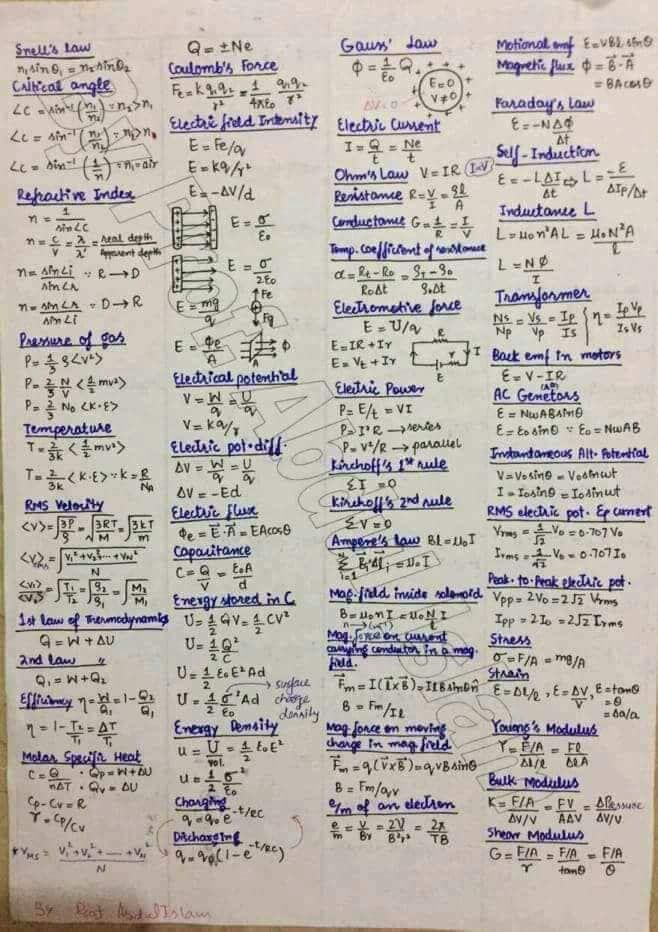 Snell's law
n₁sinθ₁ = n₂sinθ₂
Critical angle
∠C = sin⁻¹(n₁/n₂) ∵ n₂>n₁
∠C = sin⁻¹(n₁/n₂) ∵ n₂>n₁
∠C = sin⁻¹(1/n) ∵ n₁=air
Refractive Index
n = 1/sin∠C
n = c/v = λ/λ' = real depth/Apparent depth
n = sin∠i/sin∠r ∵ R→D
n = sin∠r/sin∠i ∵ D→R
Pressure of gas
P = 1/3 ρ<v²>
P = 2/3 N/V <1/2 mv²>
P = 2/3 N₀ <K·E>
Temperature
T = 2/3k <1/2 mv²>
T = 2/3k <K·E> ∵ k = R/NA
RMS Velocity
<v> = √3P/ρ = √3RT/M = √3kT/m
<v>rms = √V₁²+V₂²+...+VN²/N
<v₁>/<v₂> = √T₁/T₂ = √ρ₂/ρ₁ = √M₂/M₁
1st law of Thermodynamics
Q = W + ΔU
2nd law "
Q₁ = W + Q₂
Efficiency η = W/Q₁ = 1 - Q₂/Q₁
η = 1 - T₂/T₁ = ΔT/T₁
Molar Specific Heat
C = Q/nΔT · Qp = W+ΔU
· Qv = ΔU
Cp - Cv = R
γ = Cp/Cv
*VMS = V₁²+V₂²+....+VN²/N
By
Q = ±Ne
Coulomb's Force
Fe = K q₁q₂/r² = 1/4πε₀ q₁q₂/r²
Electric field Intensity
E = Fe/q
E = Kq/r²
E = -ΔV/d
E = σ/ε₀
E = σ/2ε₀
Fe
E = mg/q
Fg
E = Φe/A
A
Φ
Electrical potential
V = W/q = U/q
V = Kq/r
Electric pot·diff.
ΔV = W/q = U/q
ΔV = -Ed
Electric flux
Φe = E·A = EAcosθ
Capacitance
C = Q/V = ε₀A/d
Energy stored in C
U = 1/2 QV = 1/2 CV²
U = 1/2 Q²/C
U = 1/2 ε₀E²Ad
U = 1/2 σ²/ε₀ Ad
surface charge density
Energy Density
u = U/vol. = 1/2 ε₀E²
u = 1/2 σ²/ε₀
Charging
q = q₀e^(-t/RC)
Discharging
q = q₀(1-e^(-t/RC))
Gauss' Law
Φ = 1/ε₀ Q
E=0
V≠0
ΔV=0
Electric Current
I = Q/t = Ne/t
Ohm's Law V = IR I∝V
Resistance R = V/I = ρl/A
Conductance G = 1/R = I/V
Temp. coefficient of resistance
α = Rt-R₀/R₀Δt = ρT-ρ₀/ρ₀Δt
Electromotive force
E = U/q
E = IR+Ir
E = Vt+Ir
R
I
r
E
Electric Power
P = E/t = VI
P = I²R → series
P = V²/R → parallel
Kirchoff's 1st rule
ΣI = 0
Kirchoff's 2nd rule
ΣV = 0
Ampere's law Bl = μ₀I
Σ B·Δlᵢ = μ₀I
Mag. field inside solenoid
B = μ₀nI = μ₀N/l I
Mag. force on current
carrying conductor in a mag.
field.
Fm = I(l×B) = IlBsinθn̂
B = Fm/Il
Mag force on moving
charge in mag field
Fm = q(v×B) = qvBsinθ
B = Fm/qv
e/m of an electron
e/m = v/Br = 2V/B²r² = 2π/TB
Motional emf ε = vBl sinθ
Magnetic flux Φ = B·A
= BAcosθ
Faraday's Law
ε = -NΔΦ/Δt
Self-Induction
ε = -LΔI/Δt ⇒ L = -ε/ΔIp/Δt
Inductance L
L = μ₀n²Al = μ₀N²A/l
L = NΦ/I
Transformer
Ns/Np = Vs/Vp = Ip/Is { η = IpVp/IsVs
Back emf in motors
ε = V-IR
AC Genetors
ε = NωABsinθ
ε = ε₀sinθ ∵ ε₀ = NωAB
Instantaneous Alt. Potential
V = V₀sinθ = V₀sinωt
I = I₀sinθ = I₀sinωt
RMS electric pot. Ep current
Vrms = 1/√2 V₀ = 0.707V₀
Irms = 1/√2 V₀ = 0.707I₀
Peak·to·Peak electric pot.
Vpp = 2V₀ = 2√2 Vrms
Ipp = 2I₀ = 2√2 Irms
Stress
σ = F/A = mg/A
Strain
ε = Δl/l, ε = ΔV/V, ε = tanθ
= θ
= Δa/a
Young's Modulus
Y = F/A/Δl/l = Fl/ΔlA
Bulk Modulus
K = F/A/ΔV/V = FV/AΔV = ΔPressure/ΔV/V
Shear Modulus
G = F/A/γ = F/A/tanθ = F/A/θ